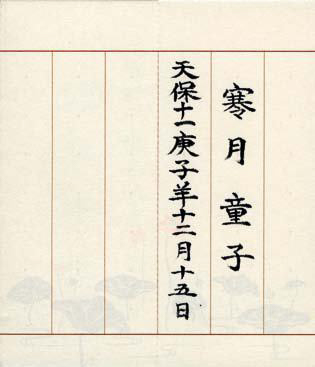 寒月童子
天保十一庚子年十二月十五日